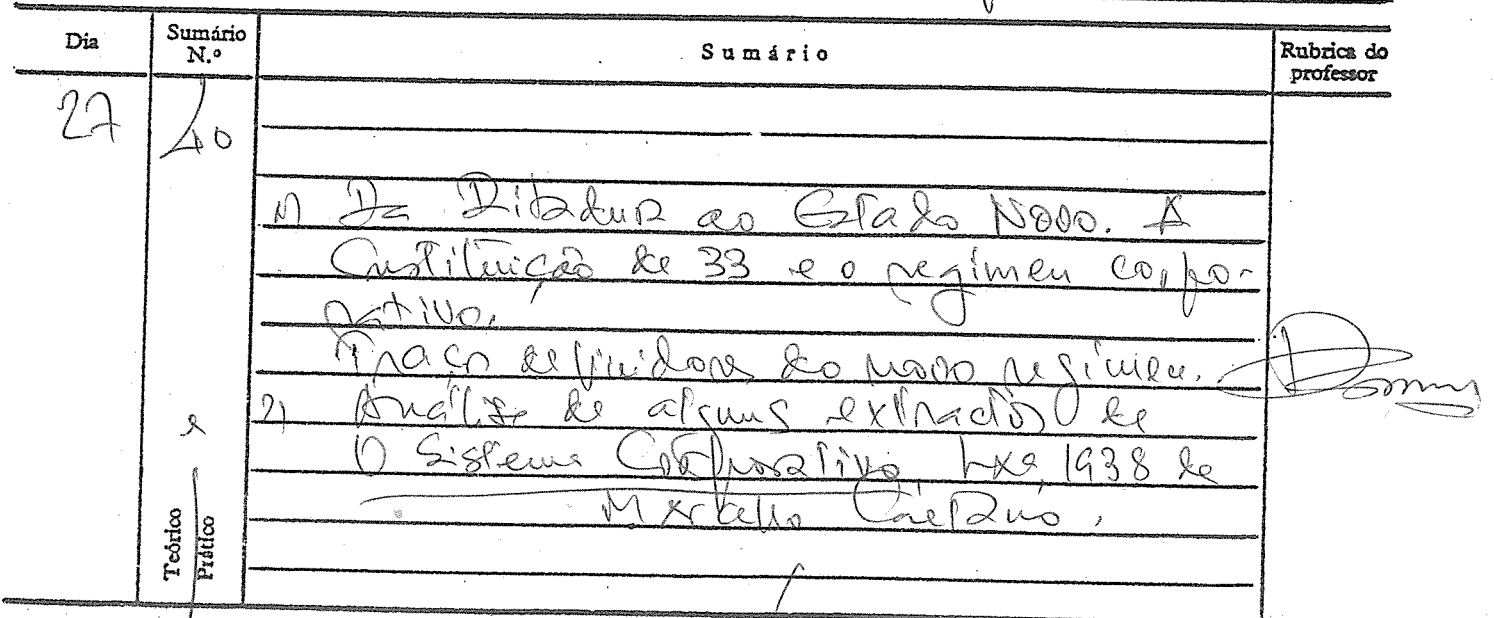 Dia
Sumário N.º
Sumário
Rubrica do professor
27
40
1) Da Ditadura ao Estado Novo. A
Constituição de 33 e o regimen corpo-
rativo.
Traços definidores do novo regimen.
2) Análise de alguns extractos de
O Sistema Corporativo, Lxª, 1938 de
Marcello Caetano.
e
Teórico
Prático